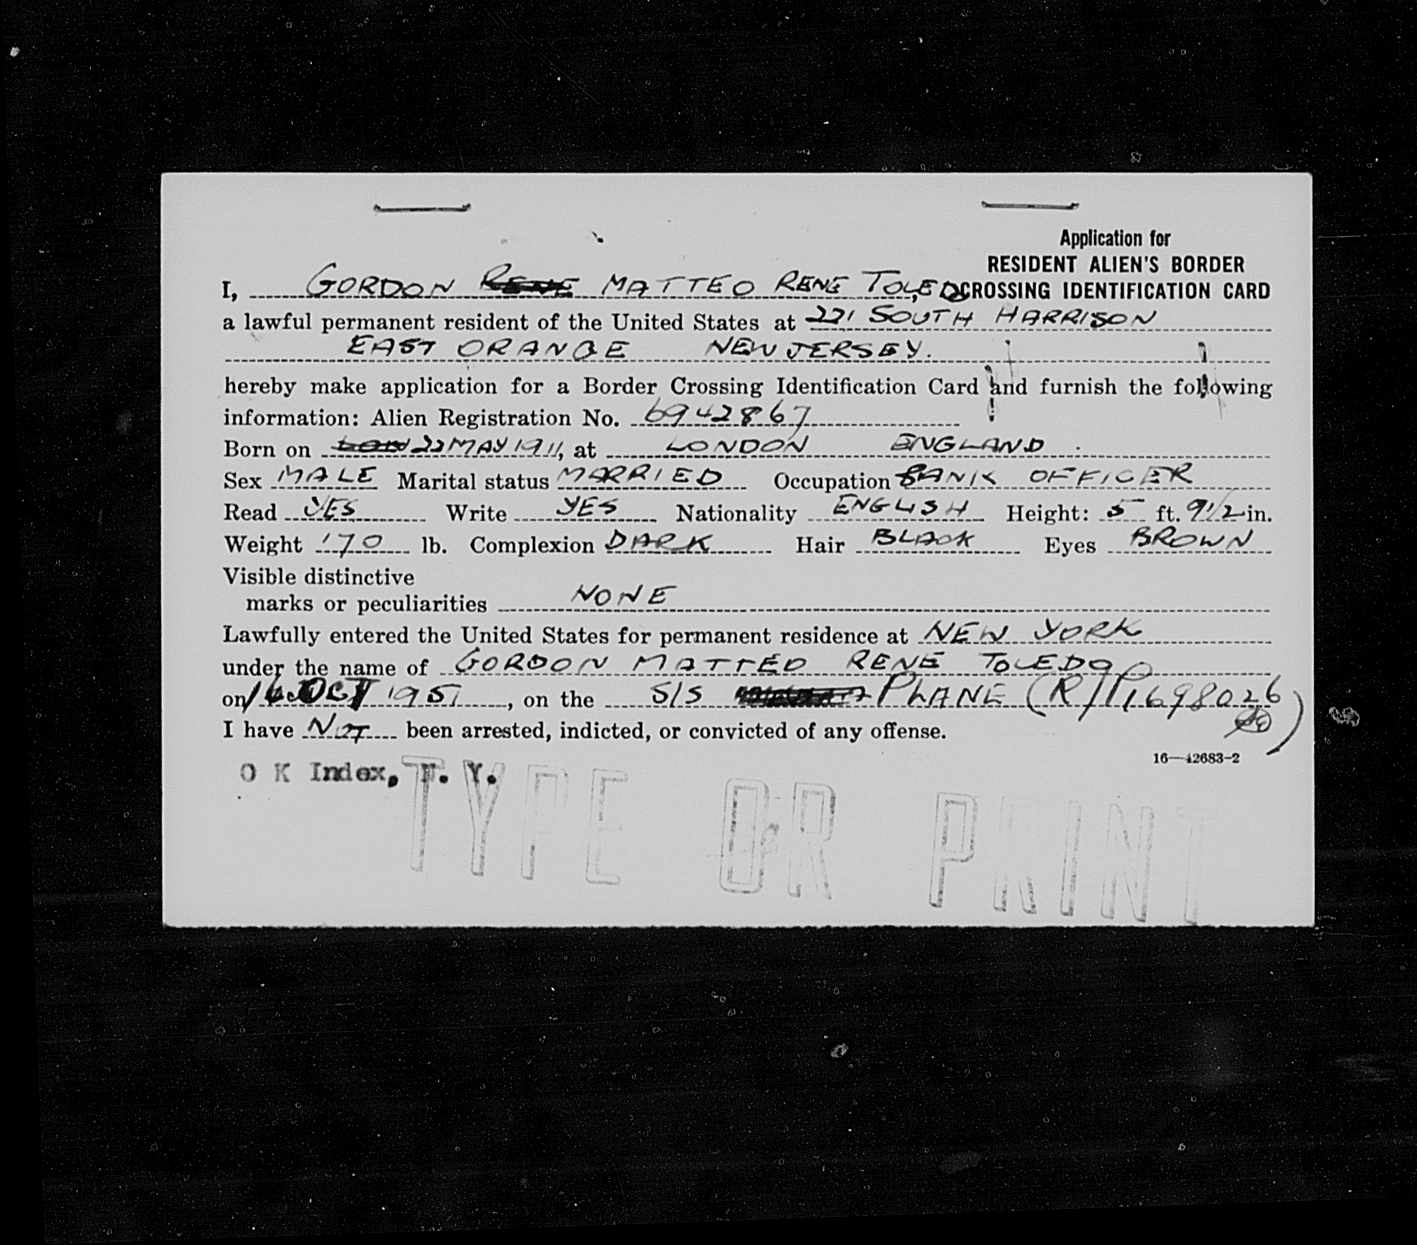 Application for
RESIDENT ALIEN'S BORDER
CROSSING IDENTIFICATION CARD
I, GORDON MATTEO RENE TOLEDO
a lawful permanent resident of the United States at 221 SOUTH HARRISON
EAST ORANGE NEW JERSEY.
hereby make application for a Border Crossing Identification Card and furnish the following
information: Alien Registration No. 6942867
Born on 22 MAY 1911, at LONDON ENGLAND
Sex MALE Marital status MARRIED Occupation BANK OFFICER
Read YES Write YES Nationality ENGLISH Height: 5 ft. 9 1/2 in.
Weight 170 lb. Complexion DARK Hair BLACK Eyes BROWN
Visible distinctive
marks or peculiarities NONE
Lawfully entered the United States for permanent residence at NEW YORK
under the name of GORDON MATTEO RENE TOLEDO
on 16 OCT 1951, on the S/S PLANE (R/P1698026)
I have NOT been arrested, indicted, or convicted of any offense.
16—42683-2
O K Index, N. Y.
TYPE OR PRINT